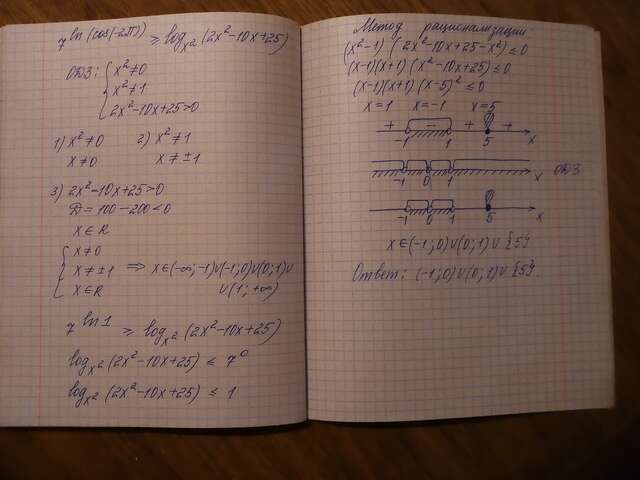 7^ln(cos(-2π)) ⩾ log_x² (2x²-10x+25)
ОДЗ: { x²≠0
x²≠1
2x²-10x+25>0
1) x²≠0 2) x²≠1
x≠0 x≠±1
3) 2x²-10x+25>0
D=100-200<0
x∈R
{ x≠0
x≠±1 ⇒ x∈(-∞;-1)∪(-1;0)∪(0;1)∪
x∈R ∪(1;+∞)
7^ln1 ⩾ log_x² (2x²-10x+25)
log_x² (2x²-10x+25) ≤ 7⁰
log_x² (2x²-10x+25) ≤ 1
Метод рационализации:
(x²-1)(2x²-10x+25-x²)≤0
(x-1)(x+1)(x²-10x+25)≤0
(x-1)(x+1)(x-5)²≤0
x=1 x=-1 x=5
+ - + +
-1 1 5 x
-1 0 1 x ОДЗ
-1 0 1 5 x
x∈(-1;0)∪(0;1)∪{5}
Ответ: (-1;0)∪(0;1)∪{5}.